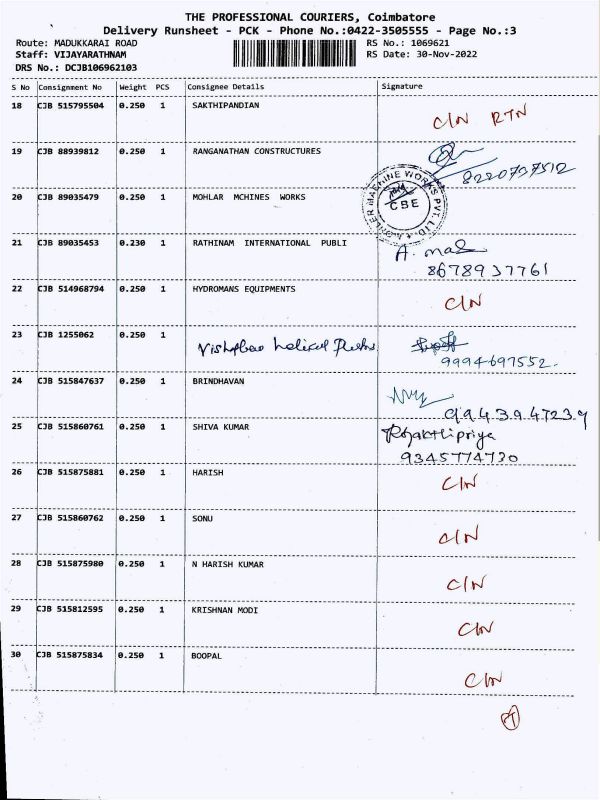 THE PROFESSIONAL COURIERS, Coimbatore
Delivery Runsheet - PCK - Phone No.:0422-3505555 - Page No.:3
Route: MADUKKARAI ROAD RS No.: 1069621
Staff: VIJAYARATHNAM RS Date: 30-Nov-2022
DRS No.: DCJB106962103
S No Consignment No Weight PCS Consignee Details Signature
18 CJB 515795504 0.250 1 SAKTHIPANDIAN C/N RTN
19 CJB 88939812 0.250 1 RANGANATHAN CONSTRUCTURES
8220737512
20 CJB 89035479 0.250 1 MOHLAR MCHINES WORKS MACHINE WORKS PVT. LTD. CBE
21 CJB 89035453 0.230 1 RATHINAM INTERNATIONAL PUBLI A. mal
8678937761
22 CJB 514968794 0.250 1 HYDROMANS EQUIPMENTS C/N
23 CJB 1255062 0.250 1
9994697552.
24 CJB 515847637 0.250 1 BRINDHAVAN
9943947239
25 CJB 515860761 0.250 1 SHIVA KUMAR
9345774730
26 CJB 515875881 0.250 1 HARISH C/N
27 CJB 515860762 0.250 1 SONU C/N
28 CJB 515875980 0.250 1 N HARISH KUMAR C/N
29 CJB 515812595 0.250 1 KRISHNAN MODI C/N
30 CJB 515875834 0.250 1 BOOPAL C/N